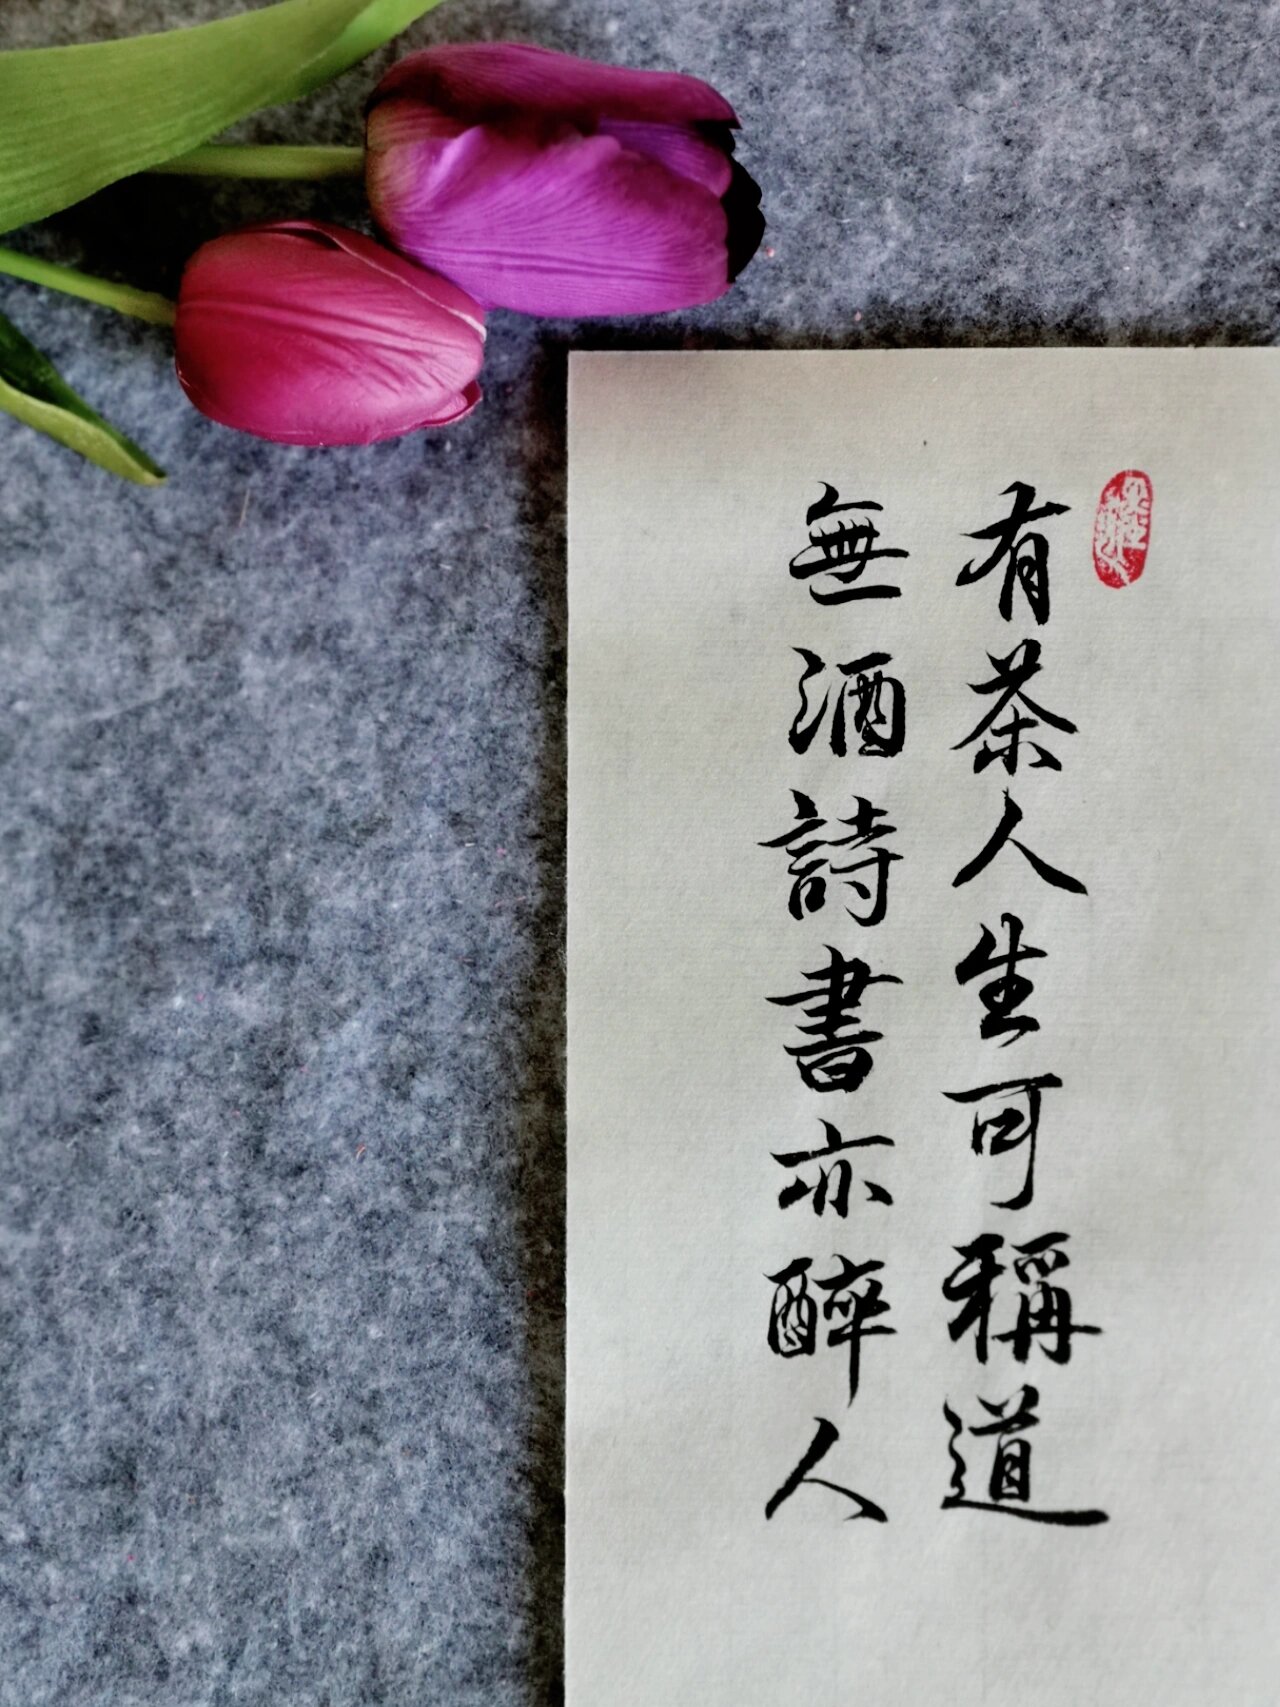 有茶人生可稱道
無酒詩書亦醉人